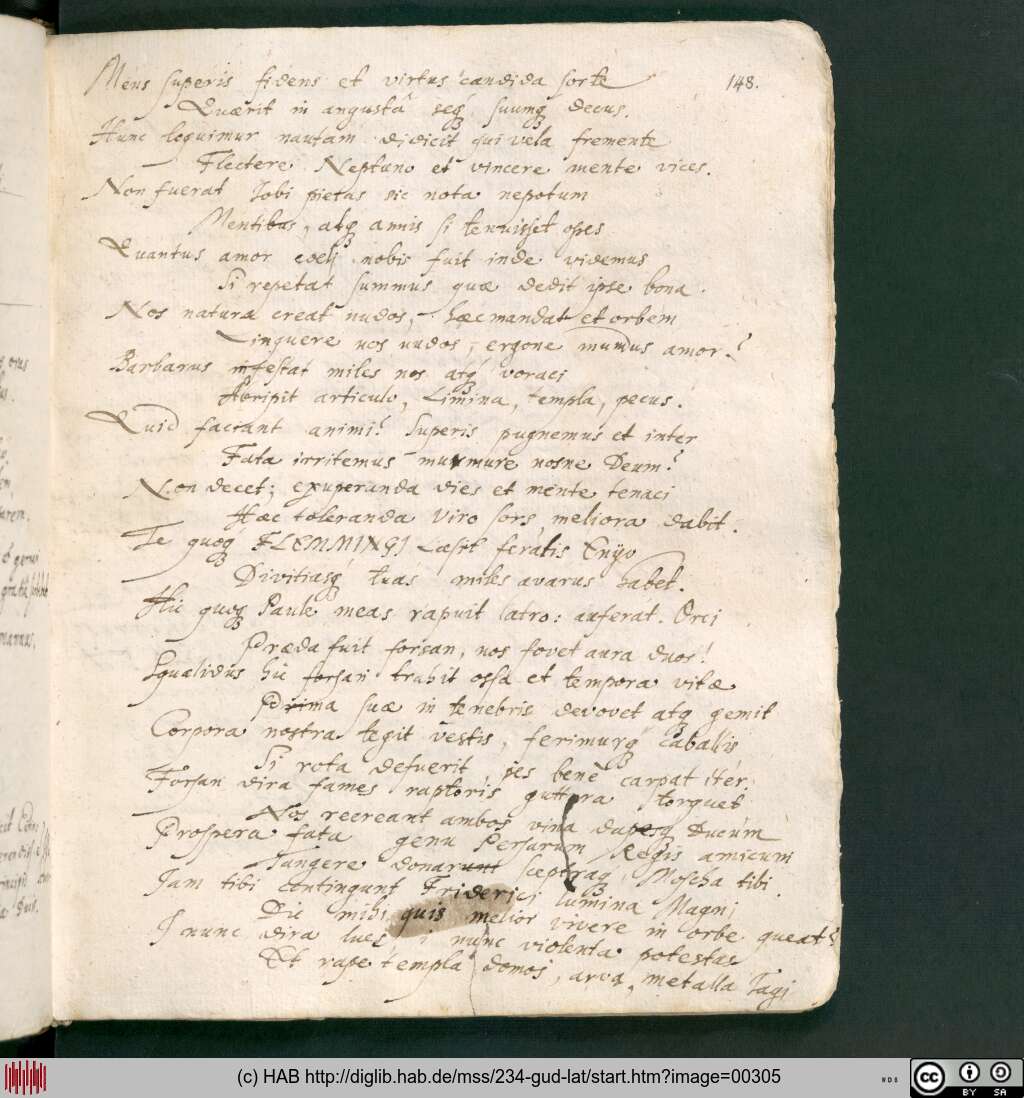 148.
Mens superis fidens et virtus candida sorte
Quærit in angustâ seq₃ suumq₃ decus.
Hunc loquimur nautam didicit qui vela fremente
Flectere Neptuno et vincere mente vices.
Non fuerat Jobi pietas sic nota nepotum
Mentibus, atq₃ annis si tenuisset opes
Quantus amor coeli nobis fuit inde videmus
Si repetat summus quæ dedit ipse bona.
Nos natura creat nudos, hæc mandat et orbem
Linquere nos nudos, ergone mundus amor?
Barbarus infestat miles nos atq₃ voraci
Abripit articulo, Limina, templa, pecus.
Quid faciant animi? Superis pugnemus et inter
Fata irritemus murmure nosne Deum?
Non decet; exuperanda dies et mente tenaci
Hæc toleranda viro sors meliora dabit.
Te quoq₃ FLEMMINGI Læsit feralis Enÿo
Divitiasq₃ tuas miles avarus habet.
Hic quoq₃ Paule meas rapuit latro: auferat. Orci
Præda fuit forsan, nos fovet aura duos!
Squalidus hic forsan trahit ossa et tempora vitæ
Prima suæ in tenebris devovet atq₃ gemit
Corpora nostra tegit vestis, ferimurq₃ caballis
Si rota defuerit, pes bene carpat iter.
Forsan dira fames raptoris guttura torquet
Nos recreant ambos vina dapesq₃ Ducum
Prospera fata genu Persarum Regis amicum
Tangere donarunt sceptraq₃ Moscha tibi.
Jam tibi contingunt Friderici lumina Magni
Dic mihi quis melior vivere in orbe queat?
I nunc dira lues, i nunc violenta potestas
Et rape templa domos, arva, metalla Tagi
(c) HAB http://diglib.hab.de/mss/234-gud-lat/start.htm?image=00305
cc BY SA